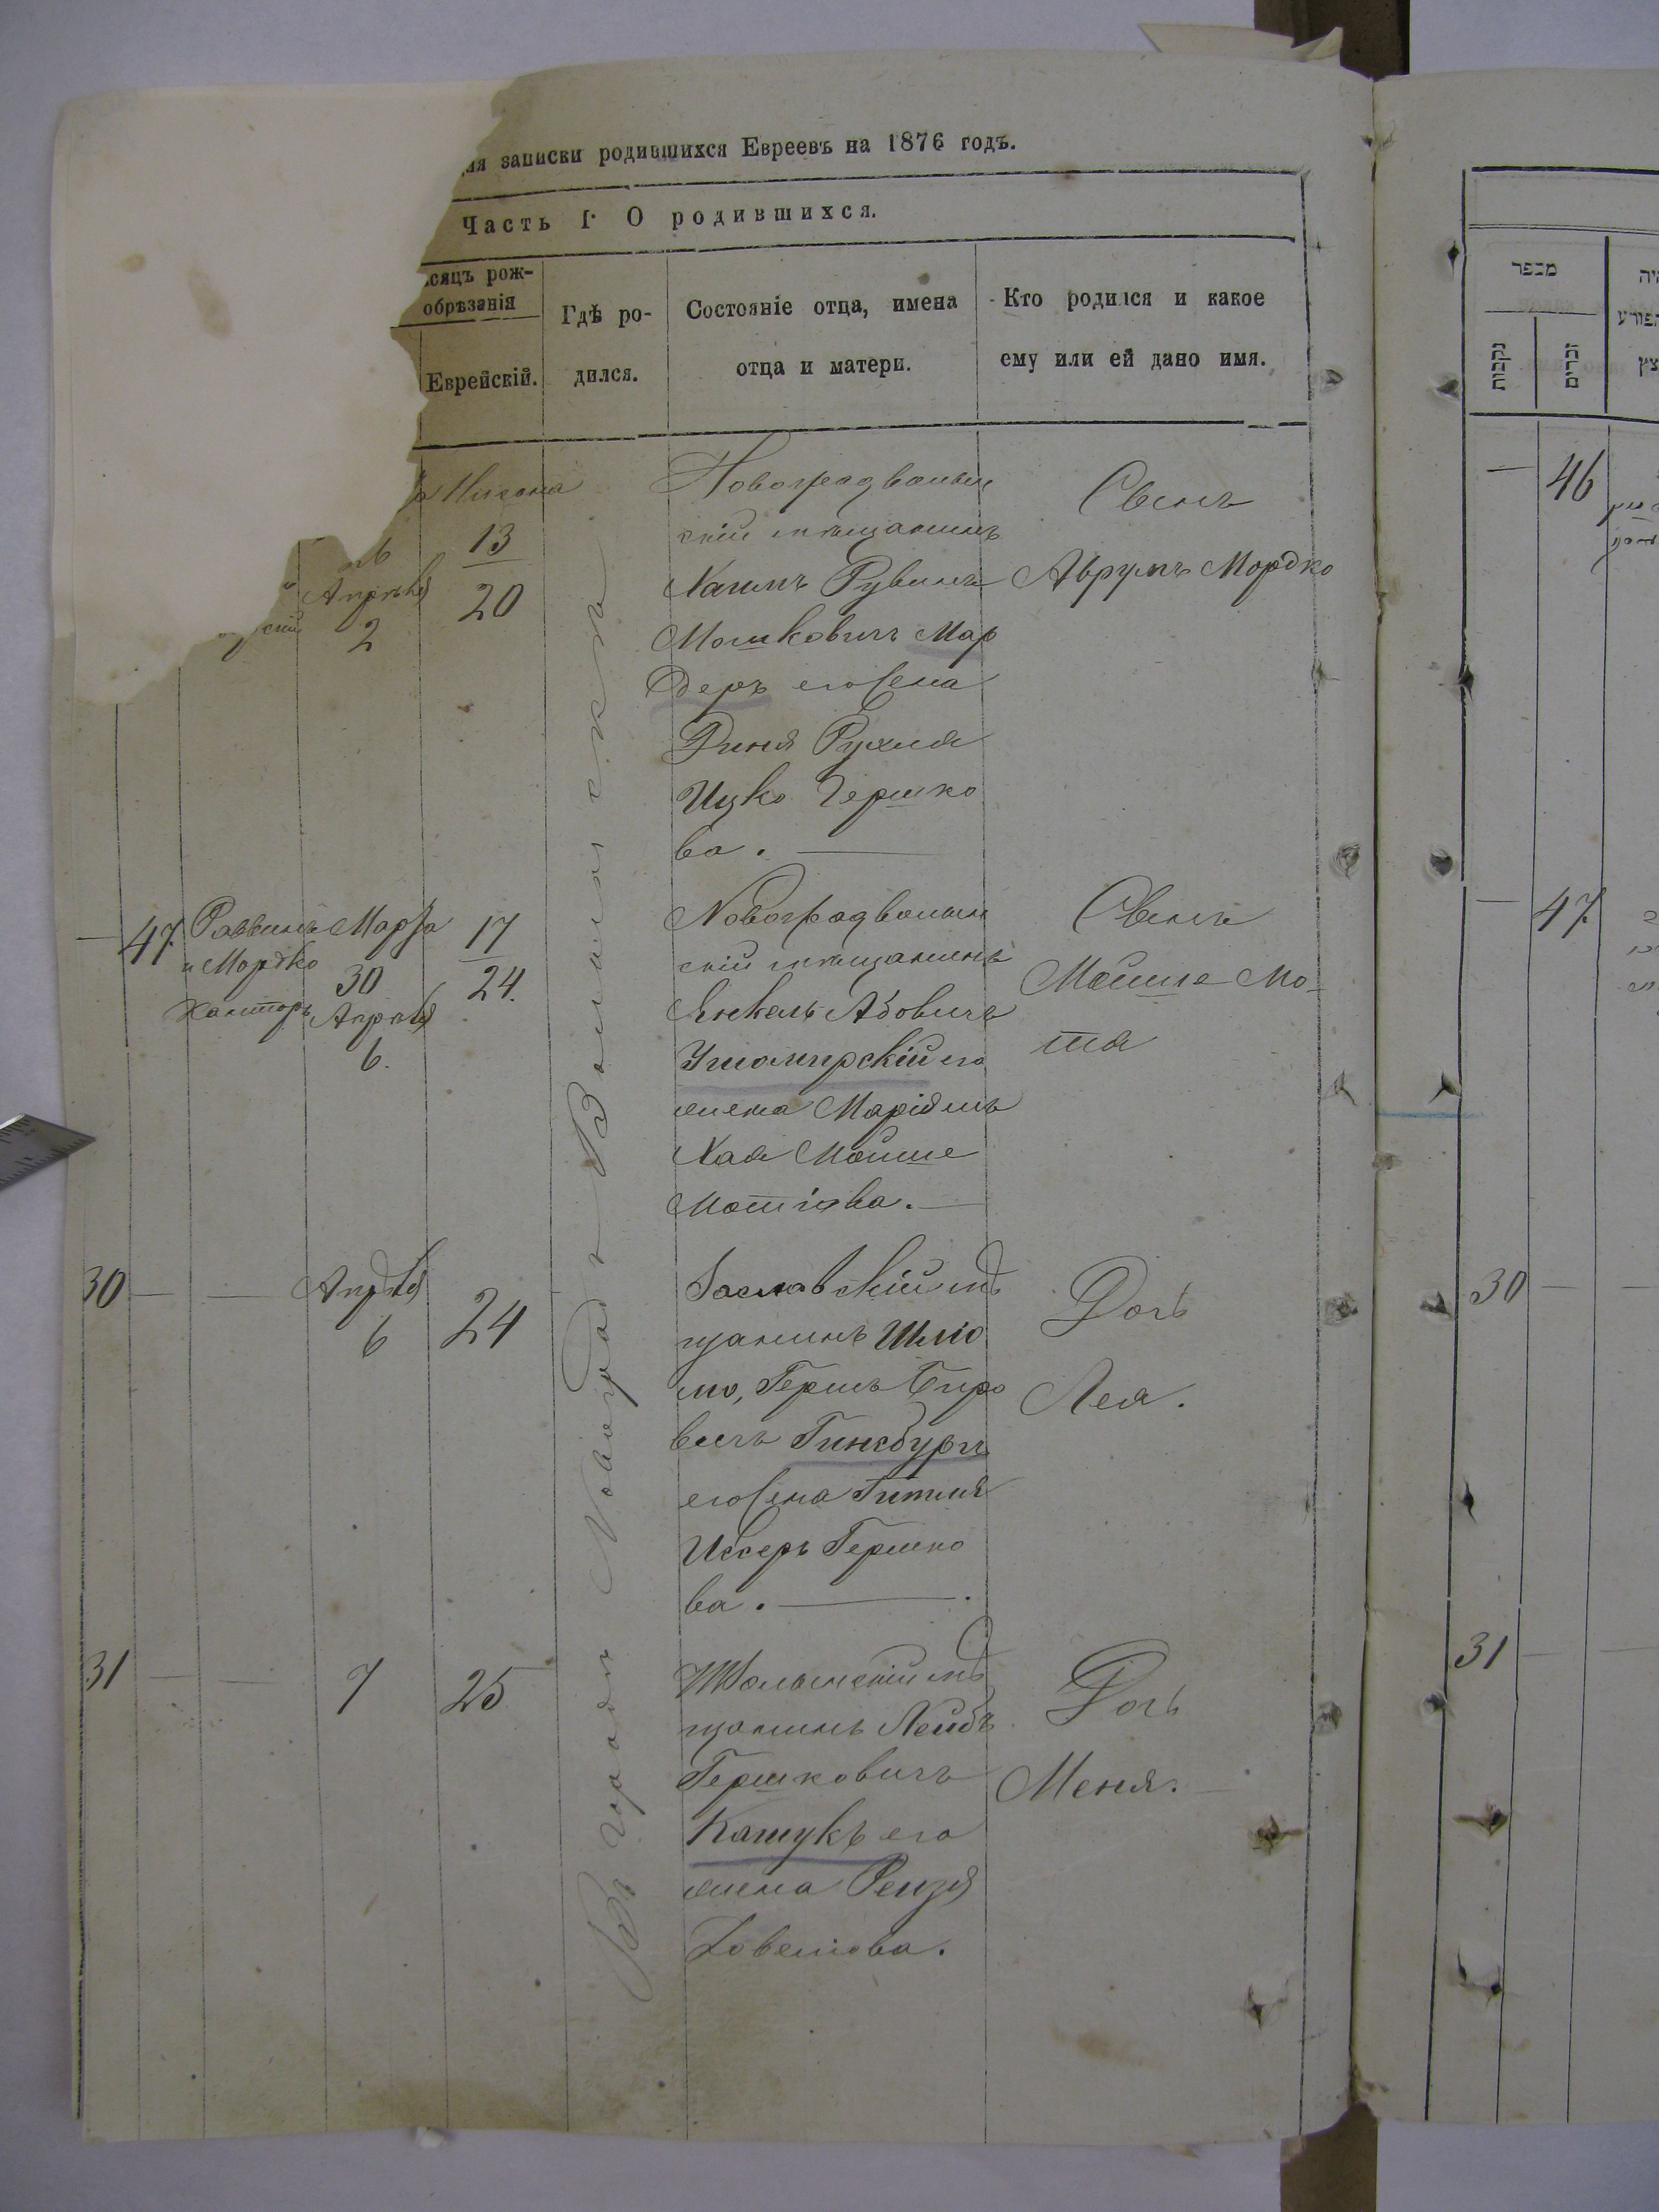 записки родившихся Евреевъ на 1876 годъ.
Часть I. О родившихся.
рож-
обрѣзанія
Еврейскій.
Гдѣ ро-
дился.
Состояніе отца, имена
отца и матери.
Кто родился и какое
ему или ей дано имя.
Въ городѣ Новоградъ Волынскѣ
Нисана
13
20
Апрѣля
2
Новоградволын
скій мѣщанинъ
Хаимъ Рувинъ
Мошковичъ Мар
деръ его жена
Диня Рухля
Ицко Гершко
ва.
Сынъ
Аврумъ Мордко
47.
Раввинъ
и Мордко
Канторъ
Марта
30
Апрѣля
6.
17
24.
Новоградволын
скій мѣщанинъ
Янкель Абовичъ
Ушомирскій его
жена Маріямъ
Хая Мойше
Мотіова.
Сынъ
Мойше Мо-
тя
30
Апрѣля
6
24
Заславскій мѣ
щанинъ Шліо
мо, Гершъ Беро
вичъ Гинсбургъ
его жена Гитля
Иссеръ Гершко
ва.
Дочь
Лея.
31
7
25
мѣ
щанинъ Лейбъ
Гершковичъ
Кашукъ его
жена Рейзя
Ховелiова.
Дочь
Меня.
מספר
נקבות
זכרים
46
47.
30
31